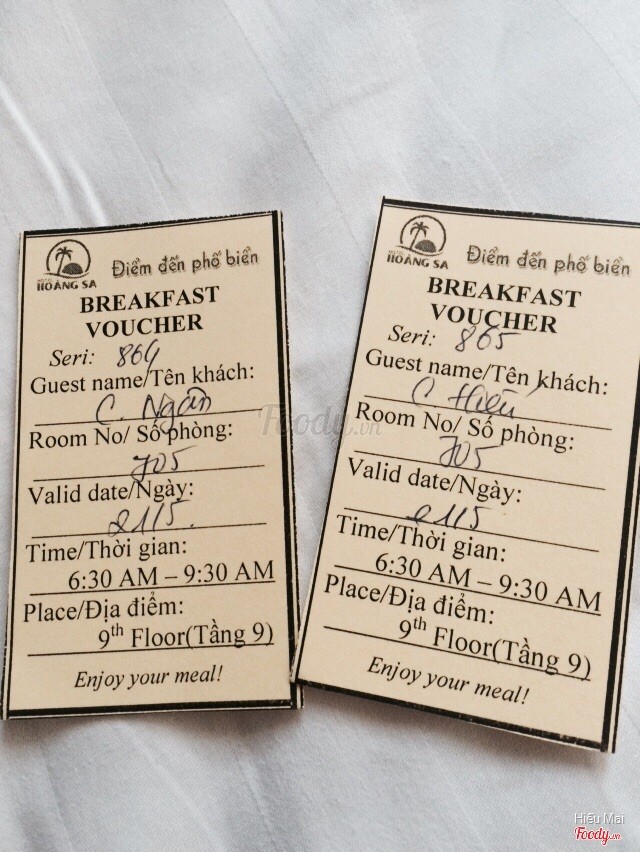 HOÀNG SA
Điểm đến phố biển
BREAKFAST
VOUCHER
Seri: 864
Guest name/Tên khách:
C. Ngân
Room No/ Số phòng:
705
Valid date/Ngày:
21/5
Time/Thời gian:
6:30 AM – 9:30 AM
Place/Địa điểm:
9th Floor(Tầng 9)
Enjoy your meal!
HOÀNG SA
Điểm đến phố biển
BREAKFAST
VOUCHER
Seri: 865
Guest name/Tên khách:
C Hiếu
Room No/ Số phòng:
705
Valid date/Ngày:
21/5
Time/Thời gian:
6:30 AM – 9:30 AM
Place/Địa điểm:
9th Floor(Tầng 9)
Enjoy your meal!
Foody.vn
Hiếu Mai
Foody.vn